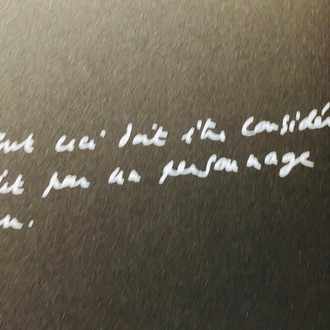 tout ceci doit être considé
dit par un personnage